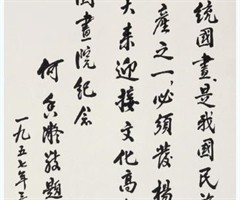 统國畫是我國民族
產之一必須發揚
大来迎接文化高
國畫院纪念
何香凝敬題
一九五七年三